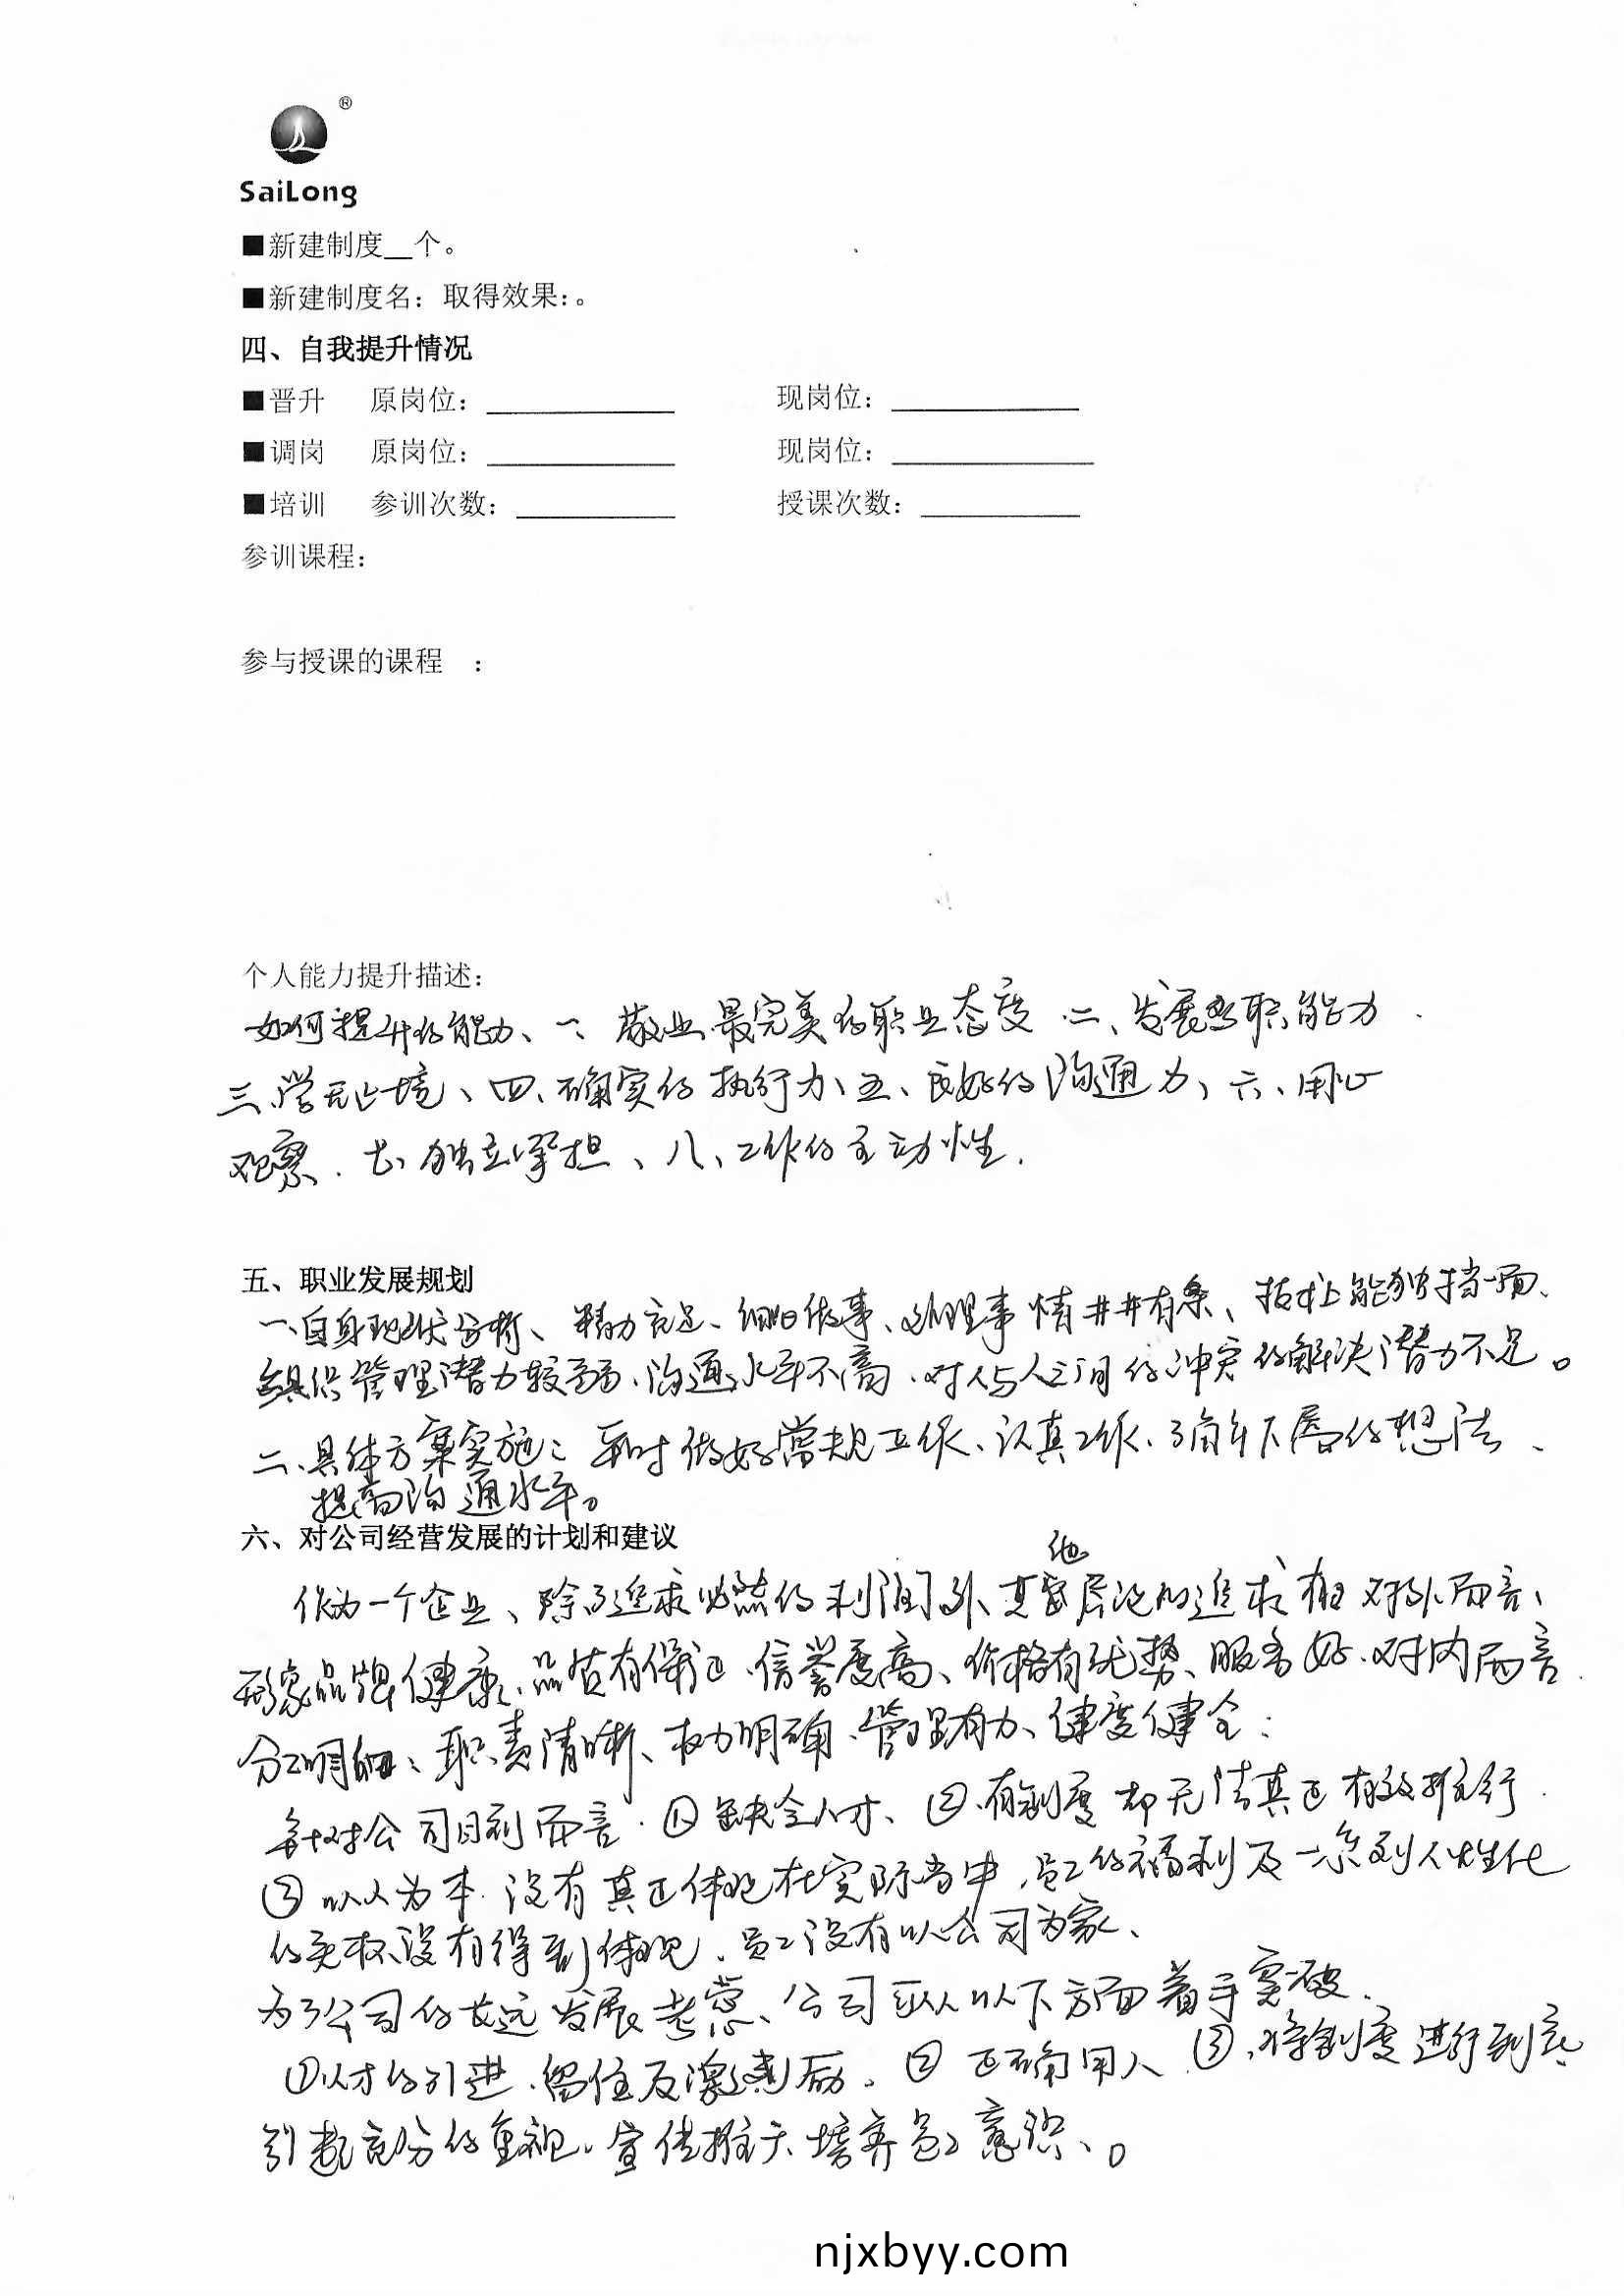 ®
SaiLong
■新建制度__个。
■新建制度名：取得效果：。
四、自我提升情况
■晋升 原岗位：____________ 现岗位：____________
■调岗 原岗位：____________ 现岗位：_____________
■培训 参训次数：__________ 授课次数：__________
参训课程：
参与授课的课程 ：
个人能力提升描述：
如何提升的能力、一、敬业最完美的职业态度 二、发展本职能力.
三、学无止境、四、确实的执行力、五、良好的沟通力、六、用心
观察. 七、独立承担、八、工作的主动性.
五、职业发展规划
一、自身现状分析、精力充足、细心做事、处理事情井井有条、技术上能独挡一面、
组织管理潜力较弱、沟通水平不高、对人与人之间的冲突的解决潜力不足。
二、具体方案实施：平时做好常规工作、认真工作、了解下属的想法、
提高沟通水平。
六、对公司经营发展的计划和建议
作为一个企业、除了追求必然的利润外、其他 的追求 对外而言、
形象品牌健康、品质有保证、信誉度高、价格有优势、服务好、对内而言.
分工明细、职责清晰、权力明确、管理有力、健度健全：
针对公司目前而言. ①缺乏人才、②有制度却无法真正有效推行.
③以人为本. 没有真正体现在实际当中，员工的福利及一系列人性化
的 没有得到体现、员工没有以公司为家、
为了公司的长远发展考虑、公司可从以下方面着手突破.
①人才的引进、留住及激励。②正确用人 ③、将制度进行到底
引起充分的重视、宣传 培养员工意识、。
njxbyy.com